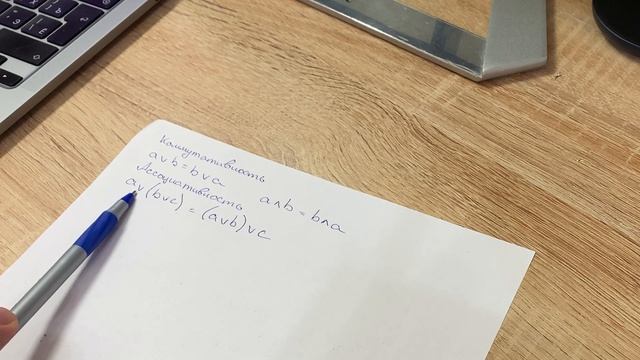 Коммутативность
a∨b = b∨a a∧b = b∧a
Ассоциативность
a∨(b∨c) = (a∨b)∨c